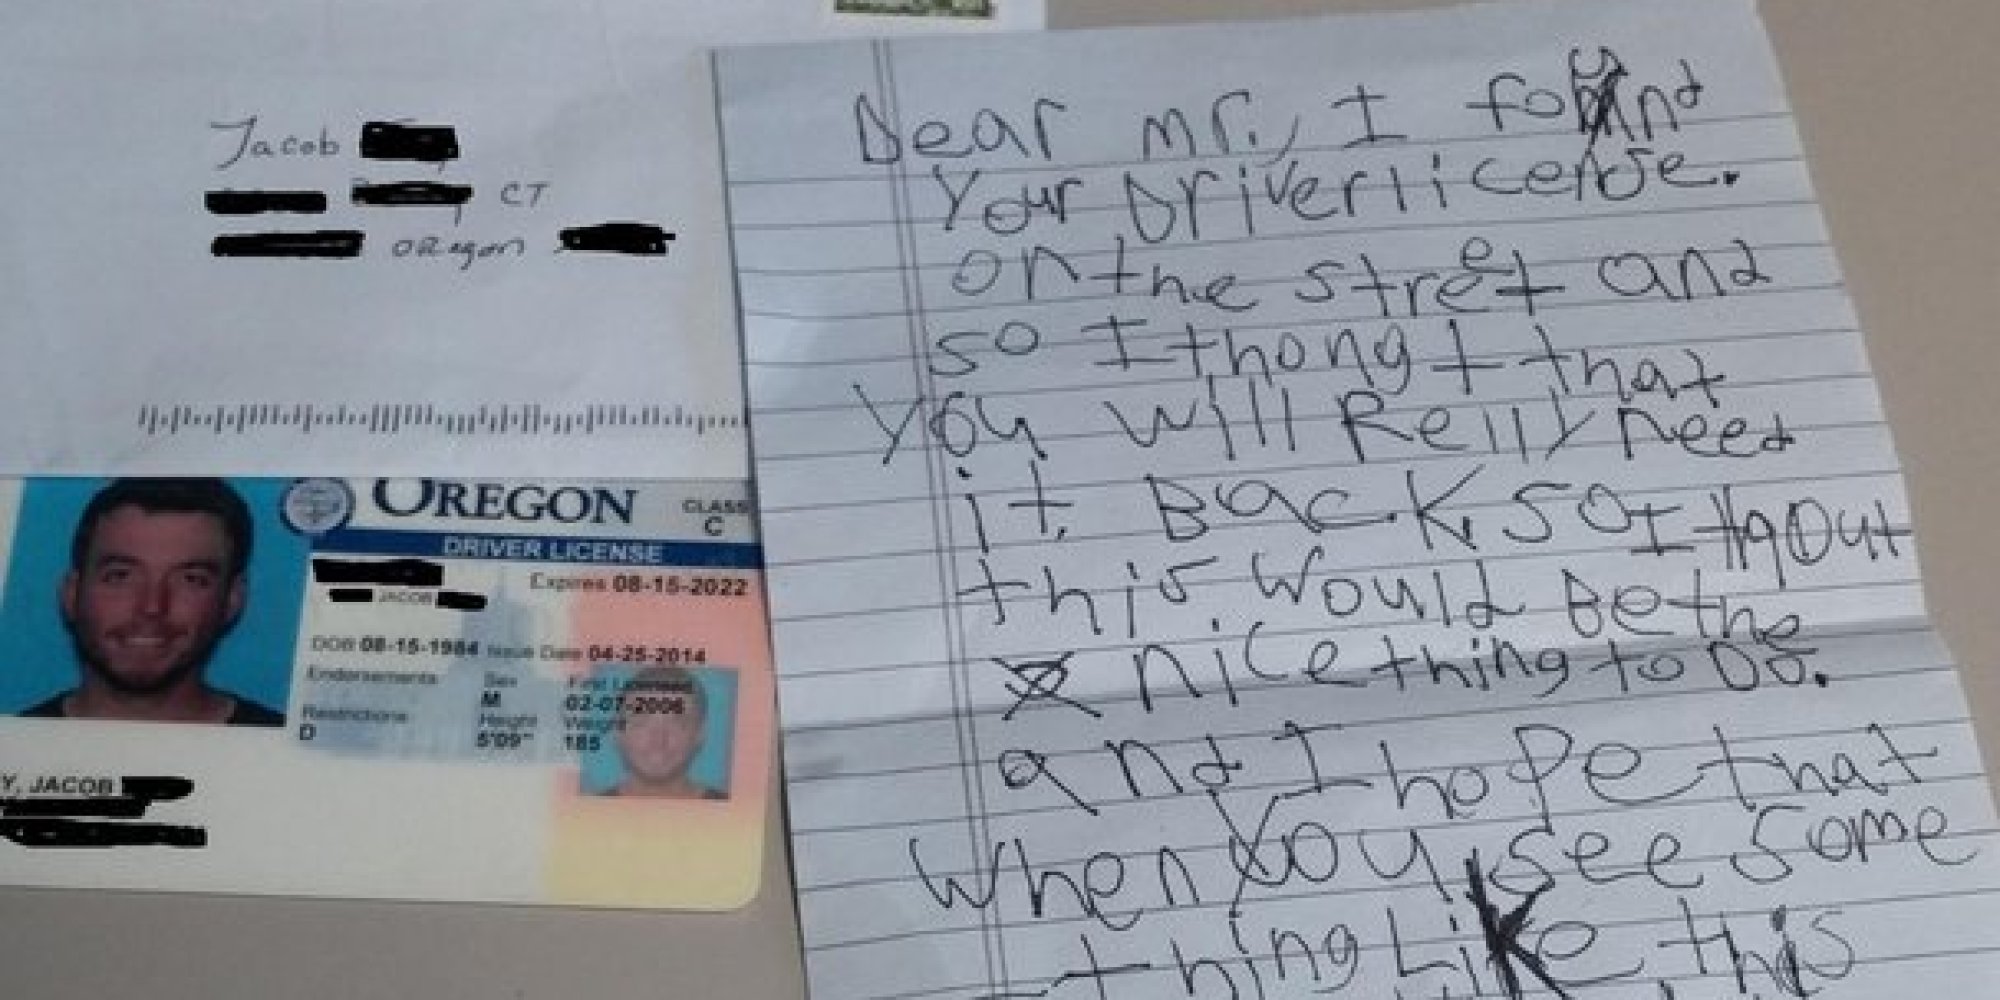 Jacob
CT
oregon
OREGON
CLASS
C
DRIVER LICENSE
JACOB
Expires 08-15-2022
DOB 08-15-1984 Issue Date 04-25-2014
Endorsements
Sex
M
First Licensed
02-07-2006
Restrictions
D
Height
5'09"
Weight
185
Y, JACOB
Dear mr., I found
Your Driverlicense.
on the street and
so I thongt that
You will Relly need
it. Back so I thgout
this would Be the
nice thing to Do.
and I hope that
When You see some
thing Like this